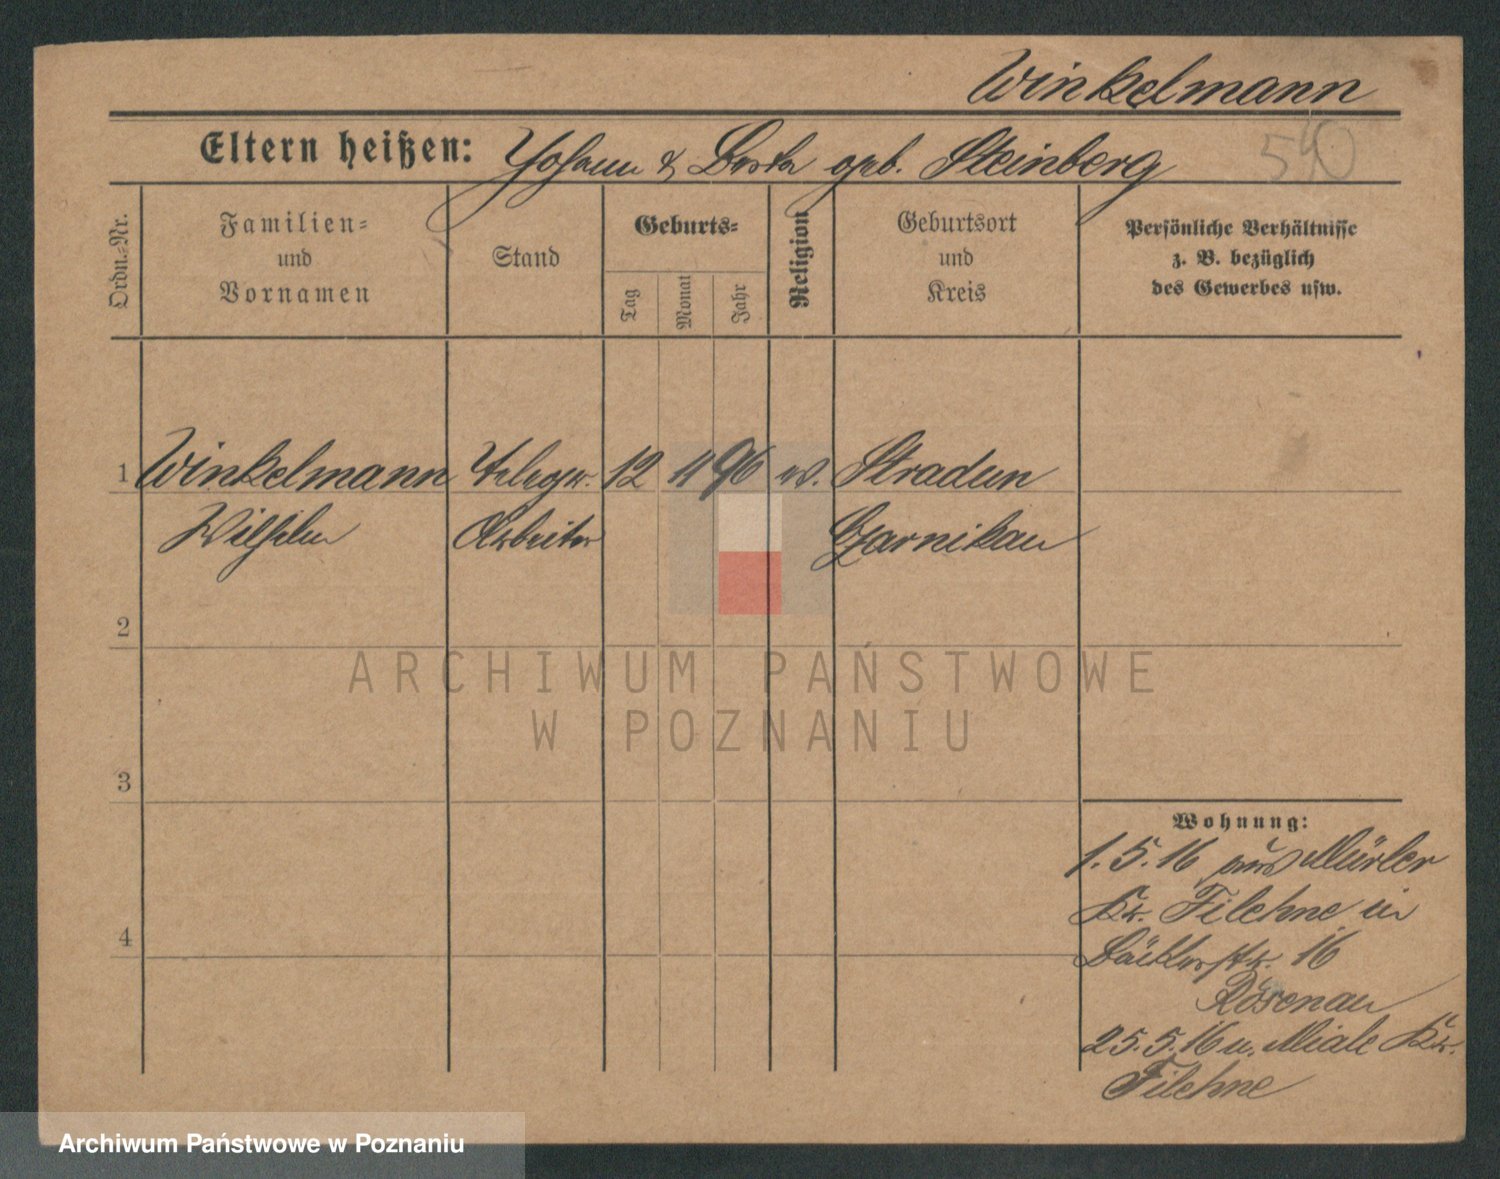 Winkelmann
540
Eltern heißen: Johann & Berta geb. Steinberg
Ordn.-Nr.
Familien-
und
Vornamen
Stand
Geburts-
Tag
Monat
Jahr
Religion
Geburtsort
und
Kreis
Persönliche Verhältnisse
z. B. bezüglich
des Gewerbes usw.
1 Winkelmann Telegr. 12 11 96 ev. Stradun
Wilhelm Arbeiter Czarnikau
2
3
4
Wohnung:
1.5.16 aus
Kr. Filehne in
Bäckerstr. 16
Rosenau
25.5.16 n. Miale Kr.
Filehne
ARCHIWUM PAŃSTWOWE
W POZNANIU
Archiwum Państwowe w Poznaniu